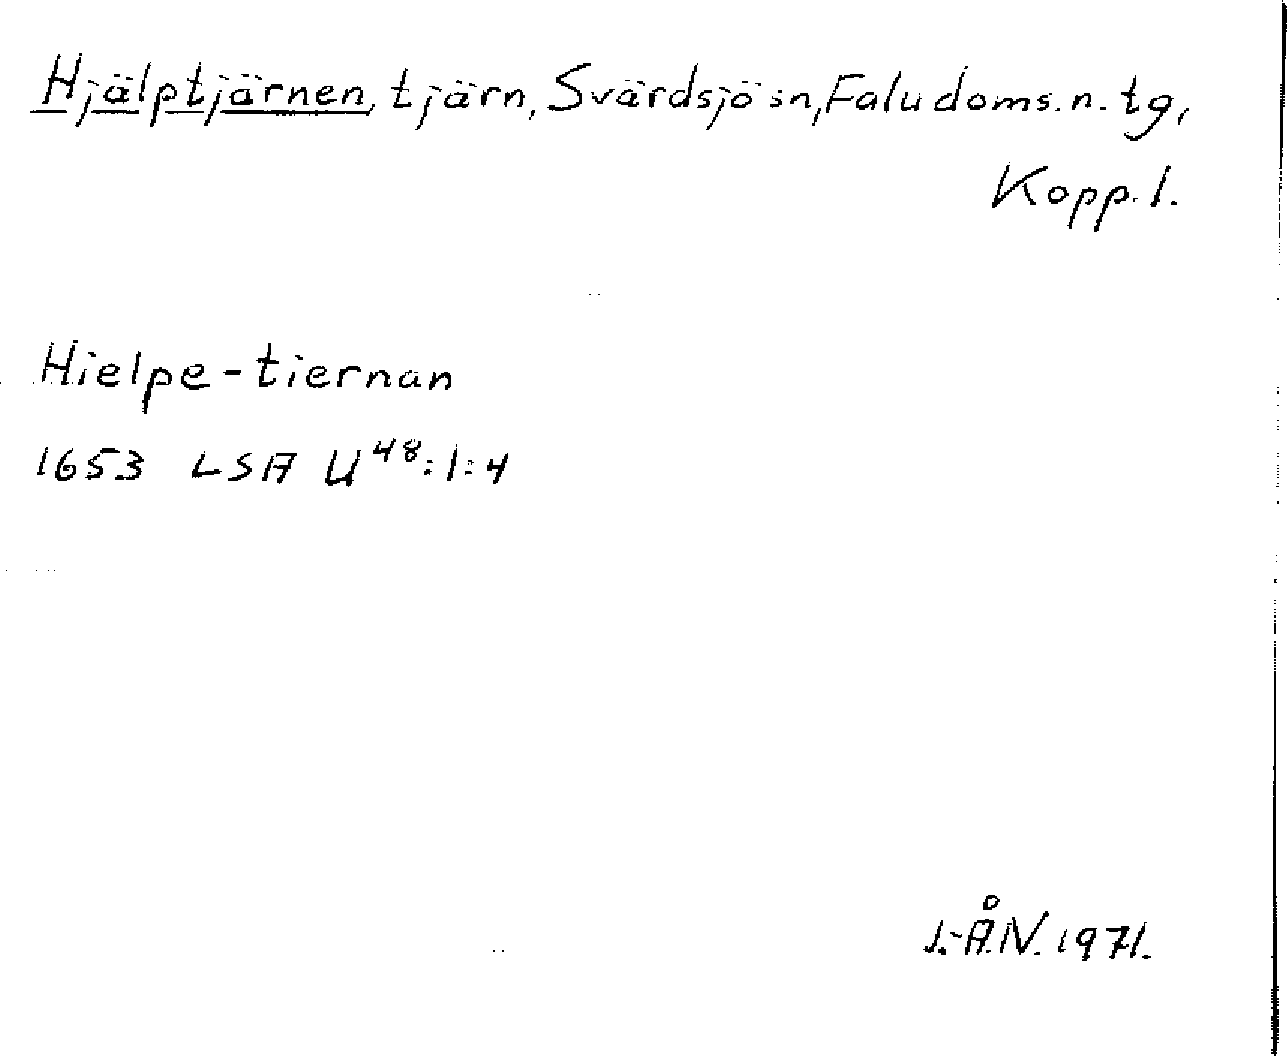 Hjälptjärnen, tjärn, Svärdsjö sn, Falu doms. n. tg,
Kopp. l.
Hielpe-tiernan
1653 LSA U48:1:4
L.-Å.N. 1971.